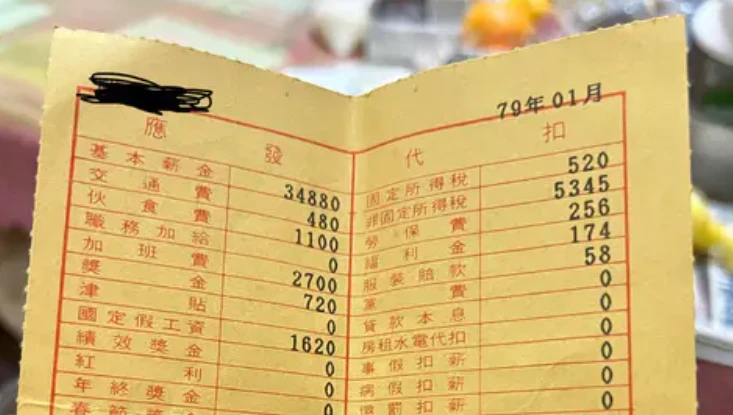 79年01月
應發
基本薪金 34880
交通費 480
伙食費 1100
職務加給 0
加班費 2700
獎金 720
津貼 0
國定假工資 1620
績效獎金 0
紅利 0
年終獎金 0
代扣
固定所得稅 520
非固定所得稅 5345
勞保費 256
福利金 174
服裝賠款 58
黨費 0
貸款本息 0
房租水電代扣 0
事假扣薪 0
病假扣薪 0
懲罰扣薪 0